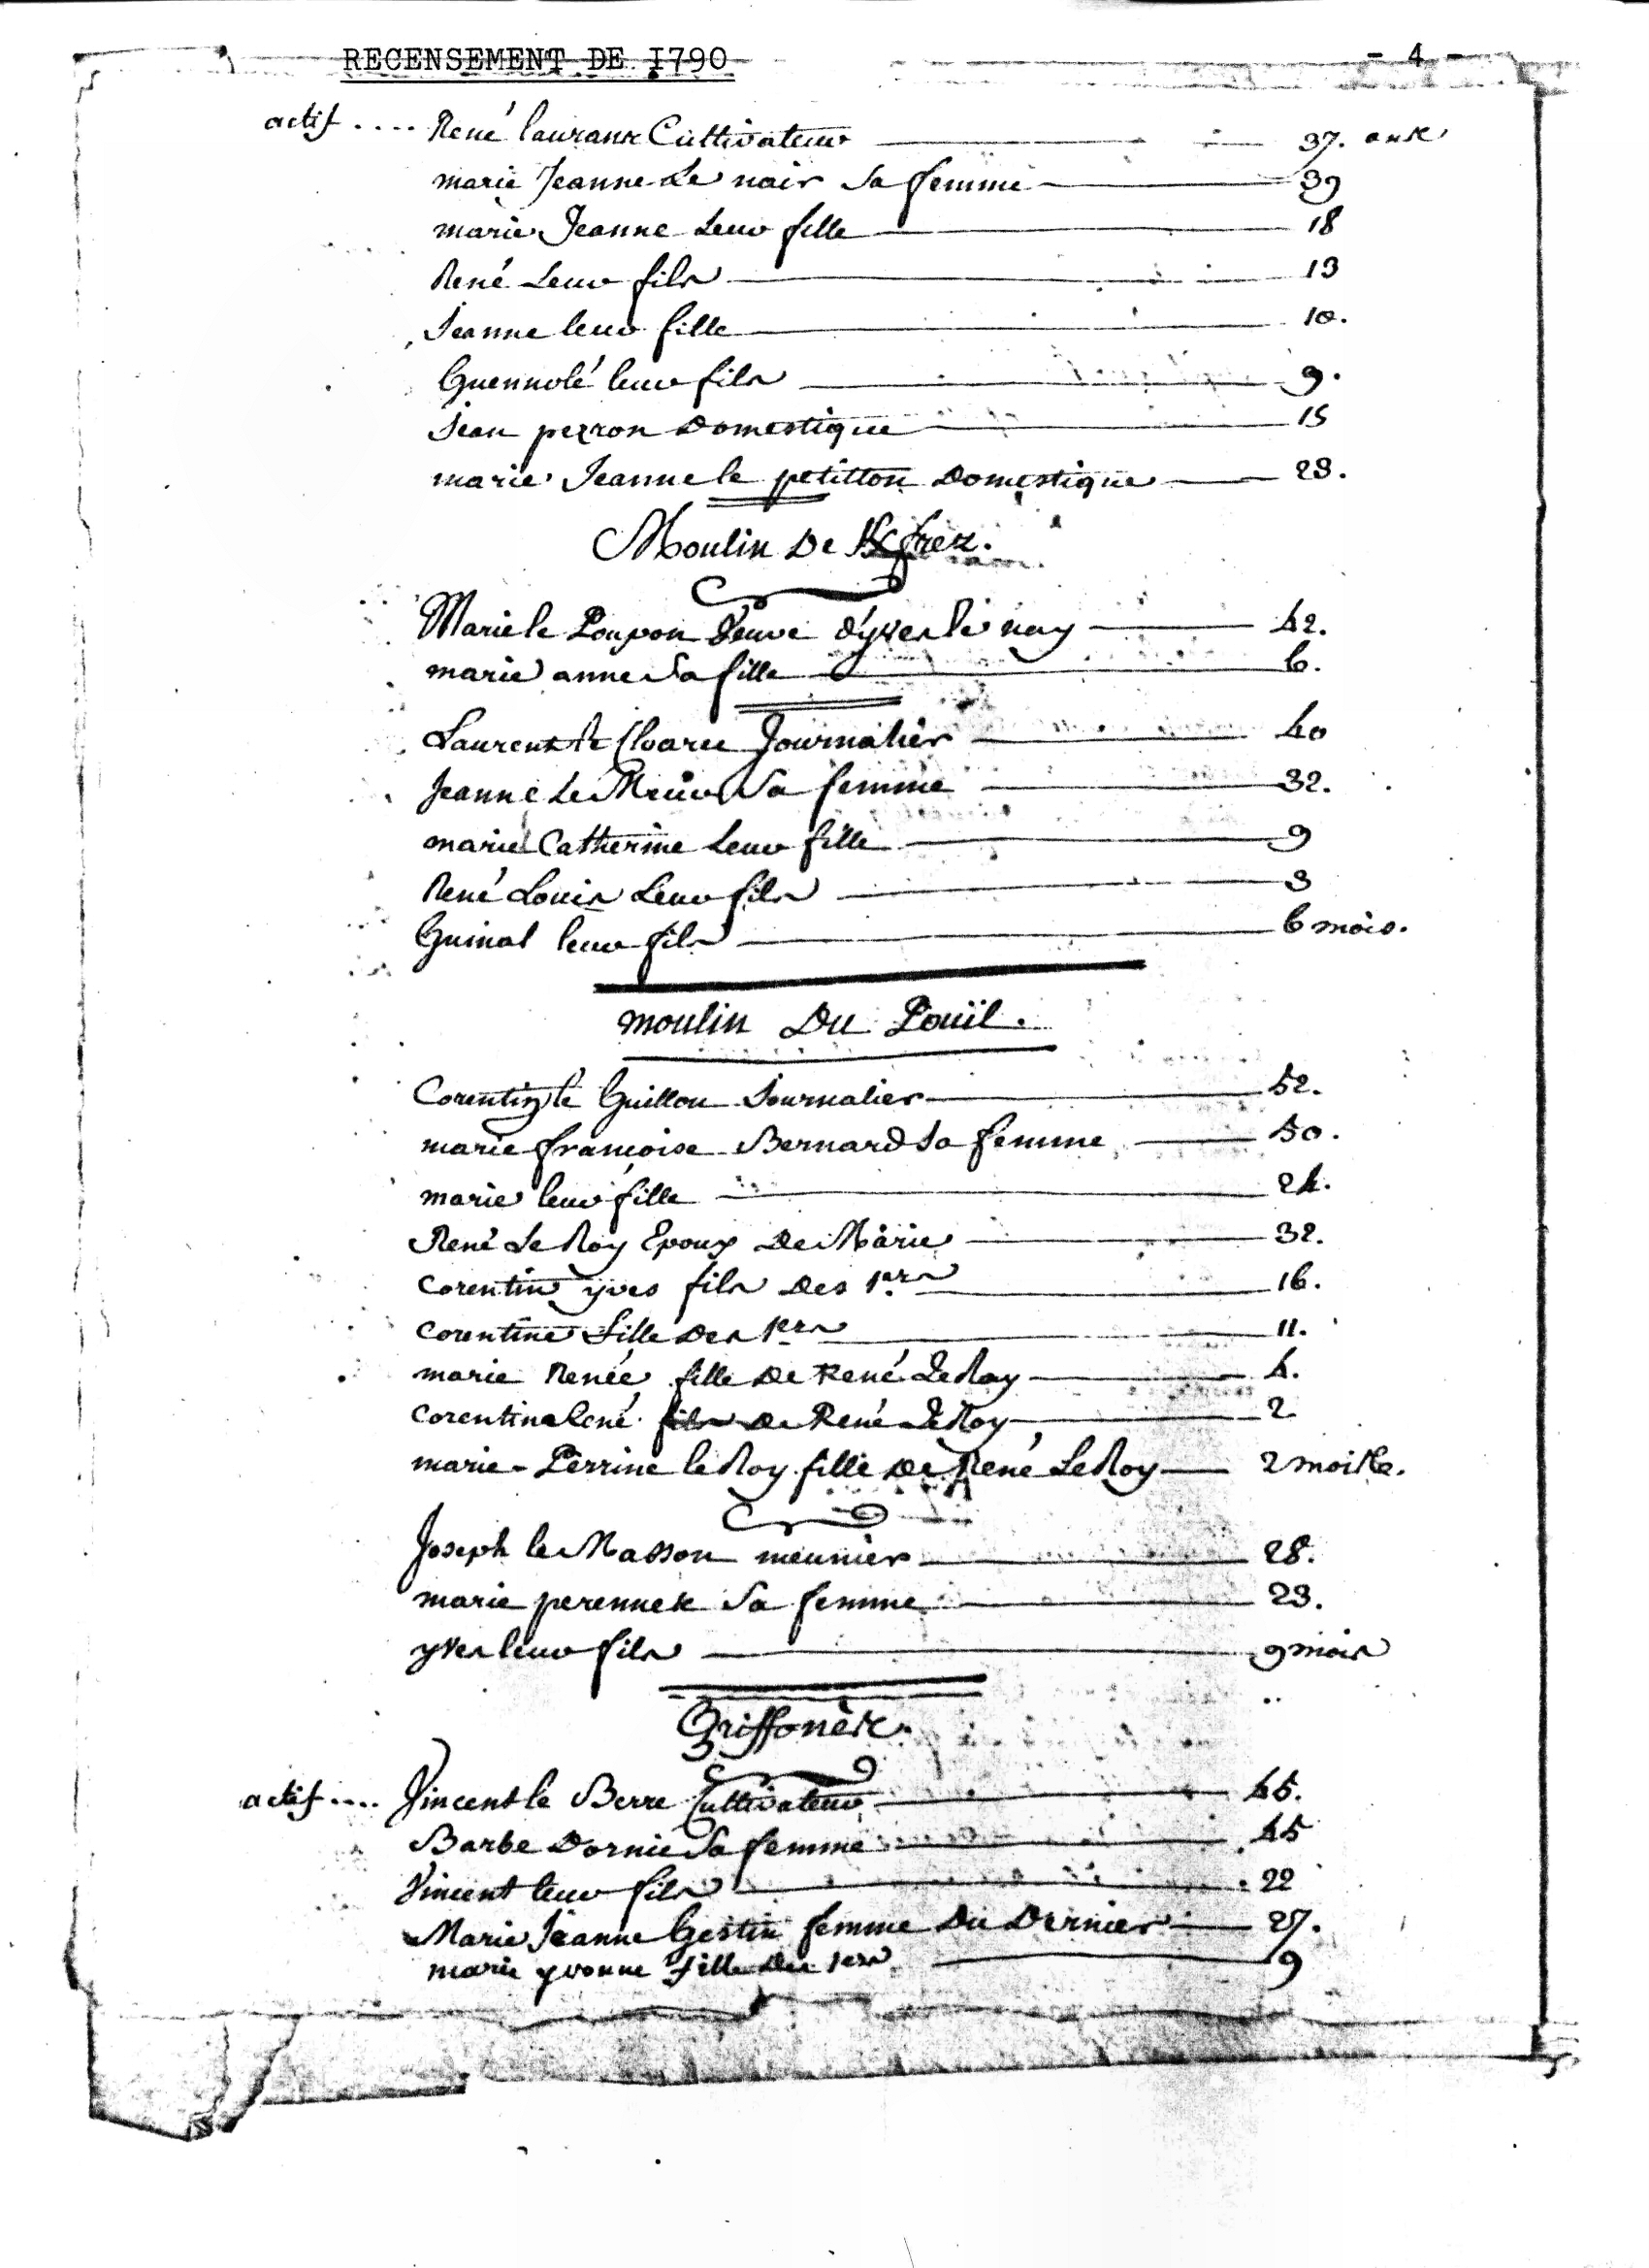 RECENSEMENT DE I790 - 4 -
actif .... René laurans Cultivateur 37. ans
marie Jeanne Le noir Sa femme 39
marie Jeanne Leur fille 18
René Leur fils 13
Jeanne leur fille 10.
Guennolé leur fils 9.
Jean perron Domestique 15
marie Jeanne le petitton Domestique 23.
Moulin De
Marie le Poupon Veuve d'yves le nay 42.
marie anne Sa fille 6.
Laurent le Cloarec Journalier 40
Jeanne Le Meur Sa femme 32.
marie Catherine Leur fille 9
René Louis Leur fils 3
Guinal leur fils 6 mois.
moulin Du Pouïl.
Corentin le Guillou Journalier 52.
marie françoise Bernard Sa femme 50.
marie leur fille 24.
René Le Roy Epoux De Marie 32.
Corentin yves fils Des 1ers 16.
Corentine fille Des 1ers 11.
marie Renée fille De René Le Roy 4.
Corentin René fils De René Le Roy 2
marie-Perrine le Roy fille De René Le Roy 2 mois.
Joseph le Masson meunier 28.
marie perennes Sa femme 23.
yves leur fils 9 mois
Griffonès.
actif .... Vincent le Berre Cultivateur 45.
Barbe Dornic Sa femme 45
Vincent leur fils 22
Marie Jeanne Gestin femme Du Dernier 27.
marie yvonne fille Des 1ers 9